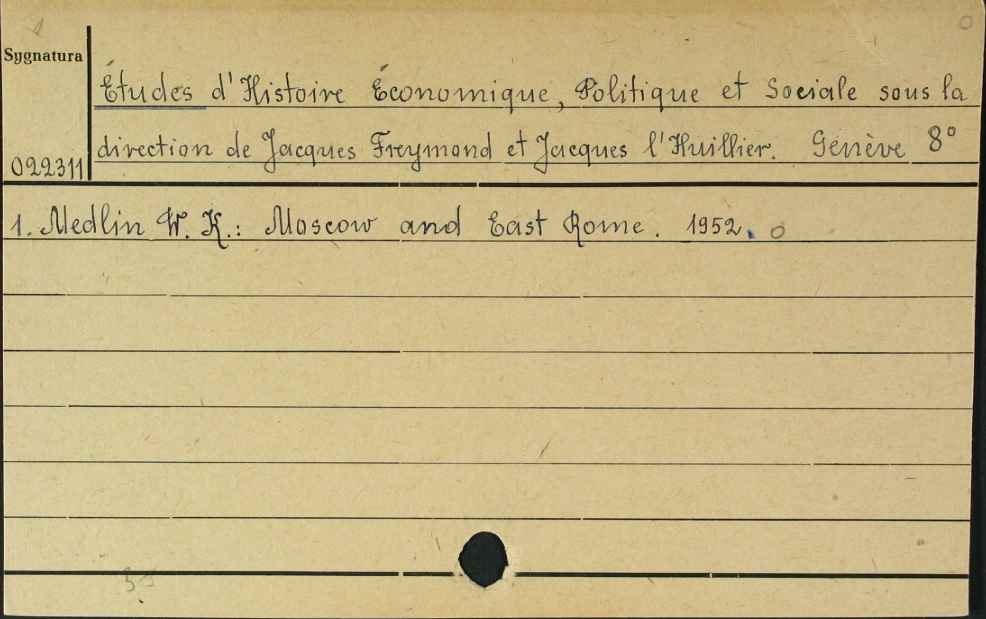 Sygnatura
Études d'Histoire Économique, Politique et Sociale sous la
direction de Jacques Freymond et Jacques l'Huillier. Genève 8°
022311
1. Medlin W. K.: Moscow and East Rome. 1952. o